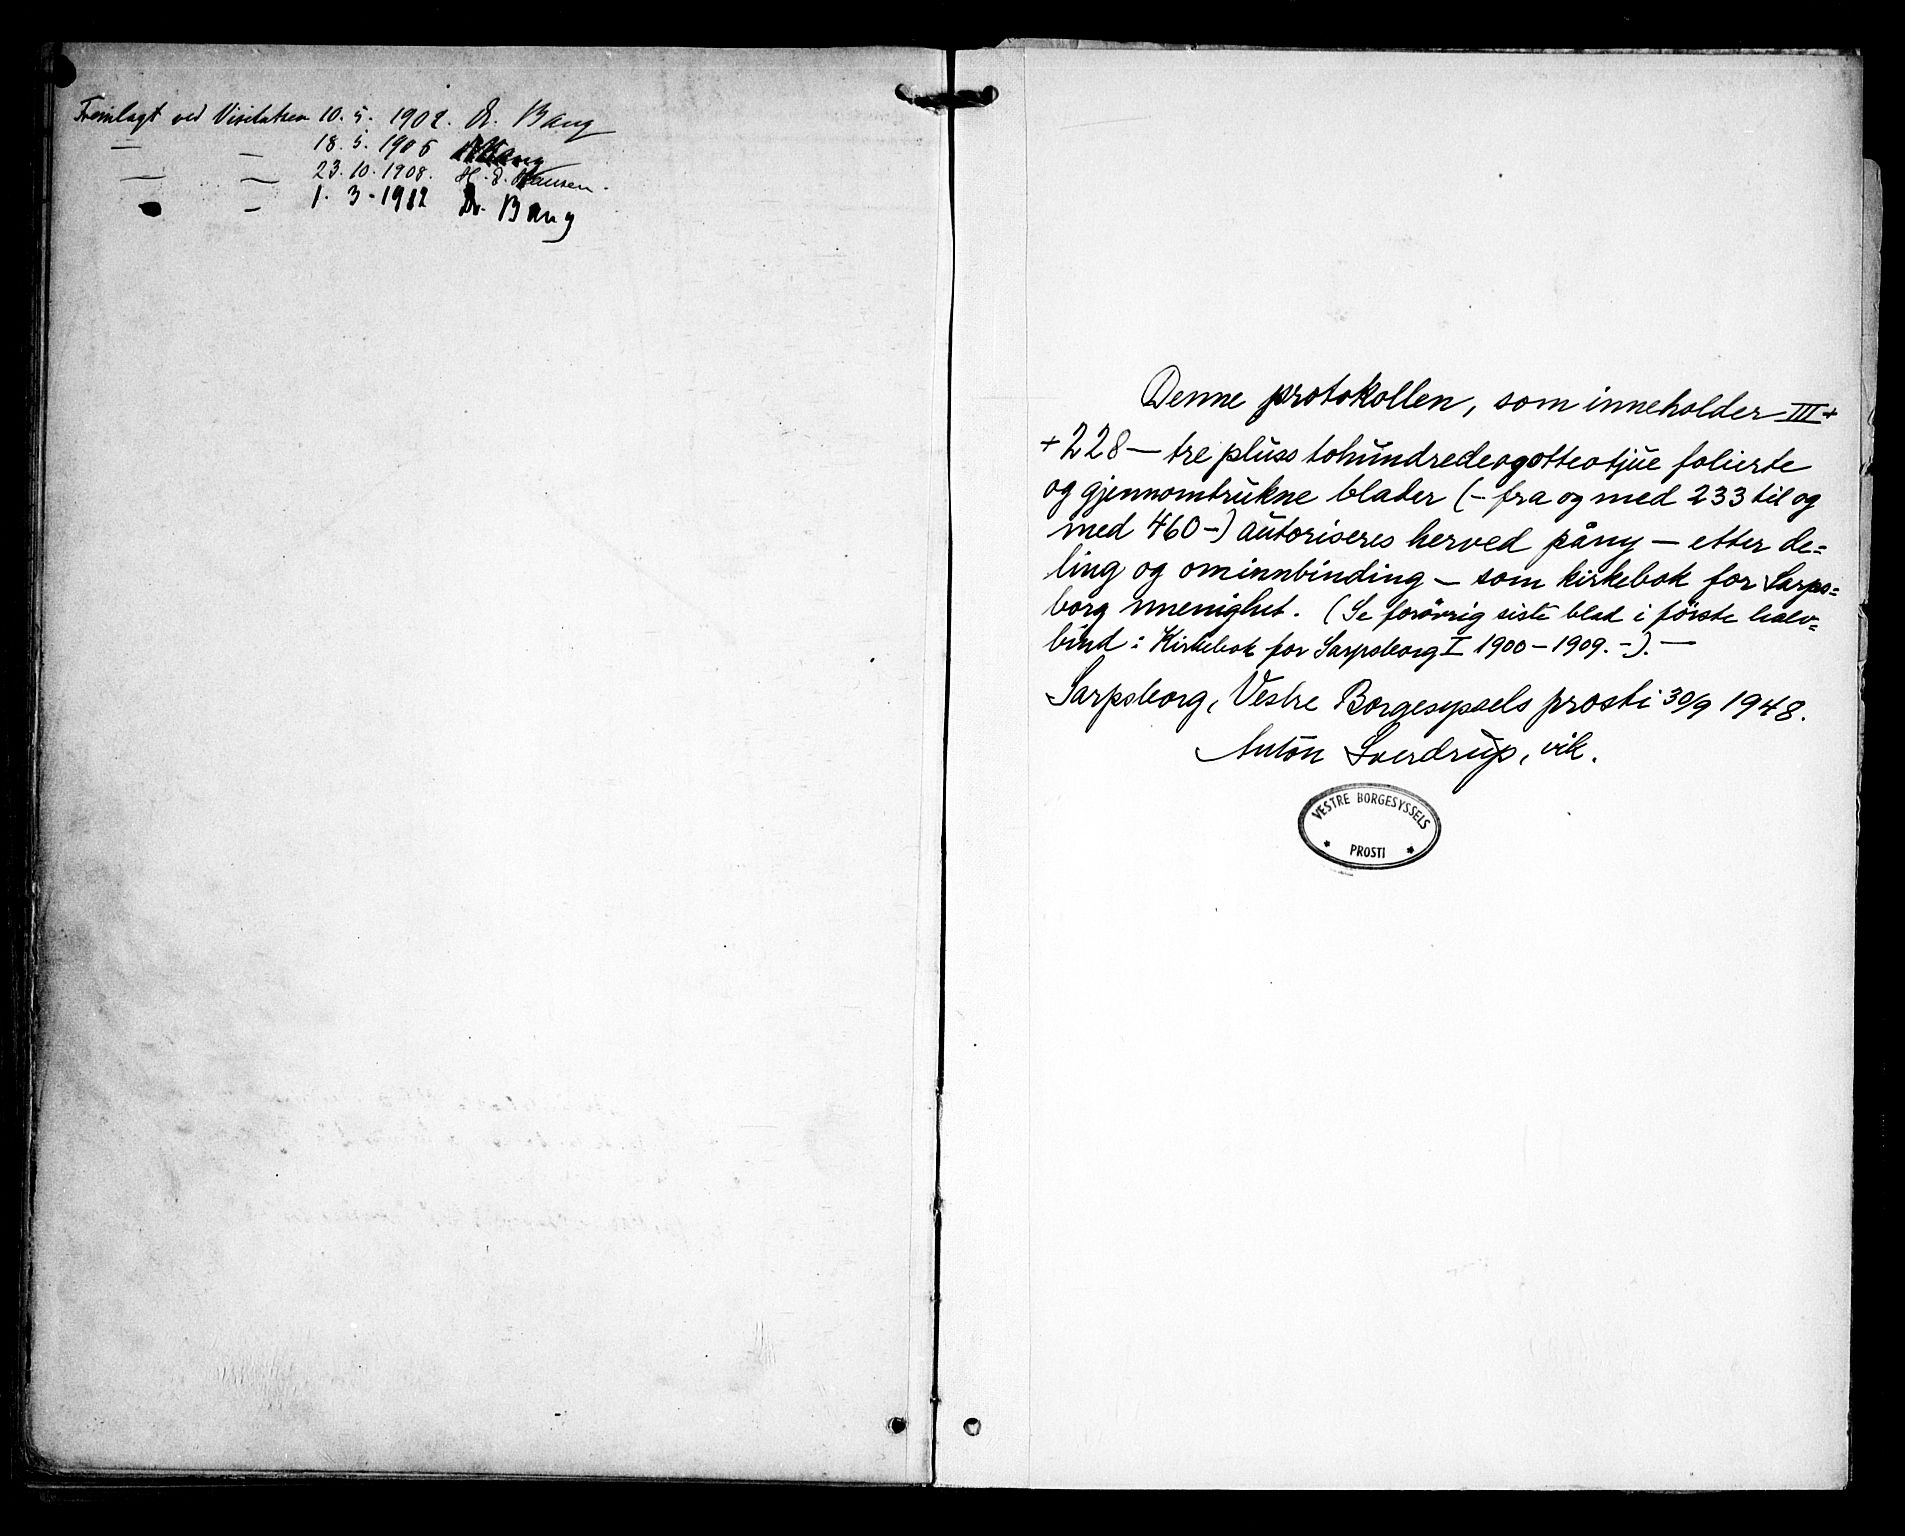 Fremlagt ved Visitatsen 10. 5. 1902. Dr. Bang
— — 18. 5. 1905 Bang
— — 23. 10. 1908. H. E. Hansen.
— 1. 3 - 1912 Dr. Bang
Denne protokollen, som inneholder III +
+ 228 — tre pluss tohundredeogotteotjue folierte
og gjennomtrukne blader (- fra og med 233 til og
med 460 -) autoriseres herved påny — etter de=
ling og ominnbinding — som kirkebok for Sarps=
borg menighet. (Se forövrig siste blad i förste halv=
bind: Kirkebok for Sarpsborg I 1900 - 1909. -). —
Sarpsborg, Vestre Borgesyssels prosti 30/9 1948.
Anton Sverdrup, vik.
VESTRE BORGESYSSELS
* PROSTI *